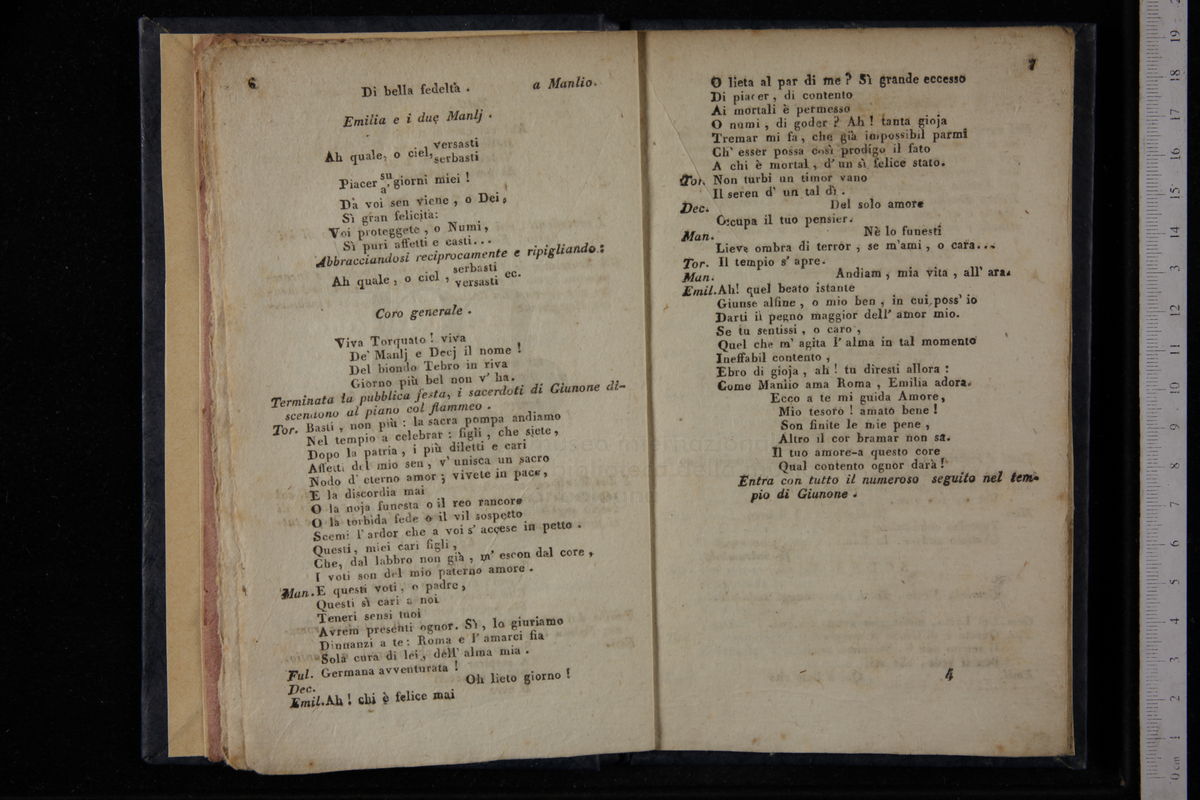 6
Di bella fedeltà . a Manlio.
Emilia e i due Manlj .
versasti
Ah quale, o ciel, serbasti
su
Piacer a' giorni miei !
Da voi sen viene , o Dei,
Sì gran felicità:
Voi proteggete , o Numi,
Sì puri affetti e casti...
Abbracciandosi reciprocamente e ripigliando :
serbasti
Ah quale , o ciel , versasti ec.
Coro generale .
Viva Torquato ! viva
De' Manlj e Decj il nome !
Del biondo Tebro in riva
Giorno più bel non v' ha.
Terminata la pubblica festa, i sacerdoti di Giunone di-
scendono al piano col flammeo .
Tor. Basti , non più : la sacra pompa andiamo
Nel tempio a celebrar : figli , che siete,
Dopo la patria , i più diletti e cari
Affetti del mio sen , v' unisca un sacro
Nodo d' eterno amor ; vivete in pace,
E la discordia mai
O la noja funesta o il reo rancore
O la torbida fede o il vil sospetto
Scemi l' ardor che a voi s' accese in petto .
Questi, miei cari figli,
Che, dal labbro non già , m' escon dal core,
I voti son del mio paterno amore .
Man. E questi voti, o padre,
Questi sì cari a noi
Teneri sensi tuoi
Avrem presenti ognor. Sì, lo giuriamo
Dinnanzi a te: Roma e l' amarci fia
Sola cura di lei, dell' alma mia .
Ful. Germana avventurata !
Dec. Oh lieto giorno !
Emil. Ah ! chi è felice mai
7
O lieta al par di me ? Sì grande eccesso
Di piacer , di contento
Ai mortali è permesso
O numi , di goder ? Ah ! tanta gioja
Tremar mi fa, che già impossibil parmi
Ch' esser possa così prodigo il fato
A chi è mortal , d' un sì felice stato.
Tor. Non turbi un timor vano
Il seren d' un tal dì .
Dec. Del solo amore
Occupa il tuo pensier.
Man. Nè lo funesti
Lieve ombra di terrór , se m'ami , o cara...
Tor. Il tempio s' apre.
Man. Andiam , mia vita , all' ara.
Emil. Ah! quel beato istante
Giunse alfine , o mio ben , in cui poss' io
Darti il pegno maggior dell' amor mio.
Se tu sentissi , o caro ,
Quel che m' agita l' alma in tal momento
Ineffabil contento ,
Ebro di gioja , ah ! tu diresti allora :
Come Manlio ama Roma , Emilia adora.
Ecco a te mi guida Amore,
Mio tesoro ! amato bene !
Son finite le mie pene ,
Altro il cor bramar non sa.
Il tuo amore a questo core
Qual contento ognor darà !
Entra con tutto il numeroso seguito nel tem-
pio di Giunone .
4